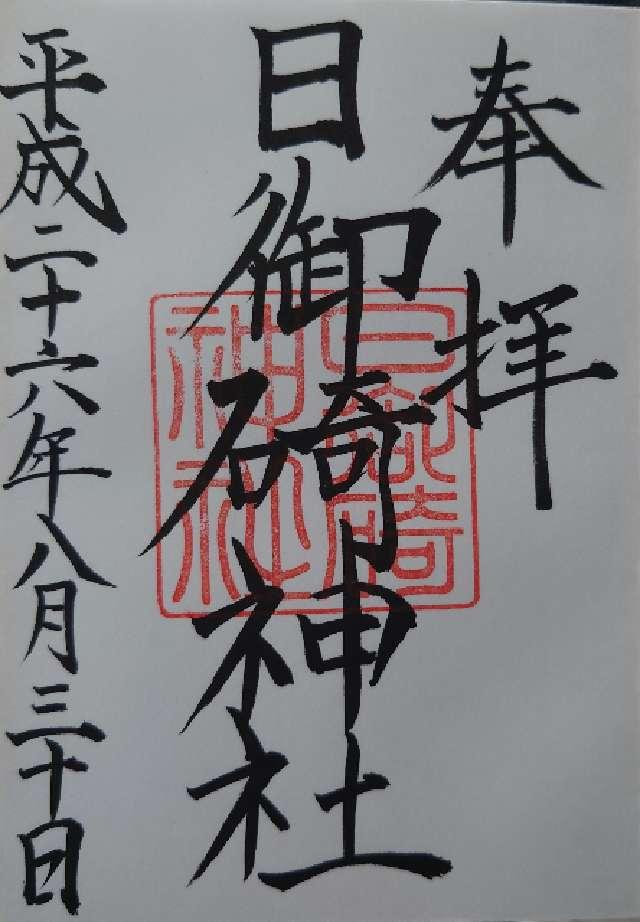 奉拝
日御碕神社
日御碕神社
平成二十六年八月三十日